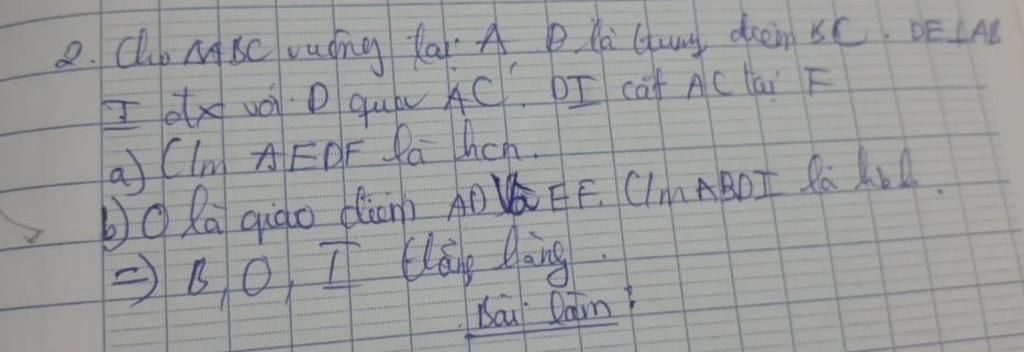 2. Cho △ABC vuông tại A D là trung điểm BC. DE⊥AB
I đx với D qua AC. DI cắt AC tại F
a) C/m AEDF là hcn.
b) O là giao điểm AD và EF. C/m ABDI là hbh.
=) B, O, I thẳng hàng.
Bài làm: